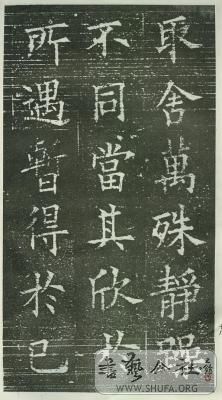 取舍萬殊靜躁
不同當其欣於
所遇暫得於己
WWW.SHUFA.ORG